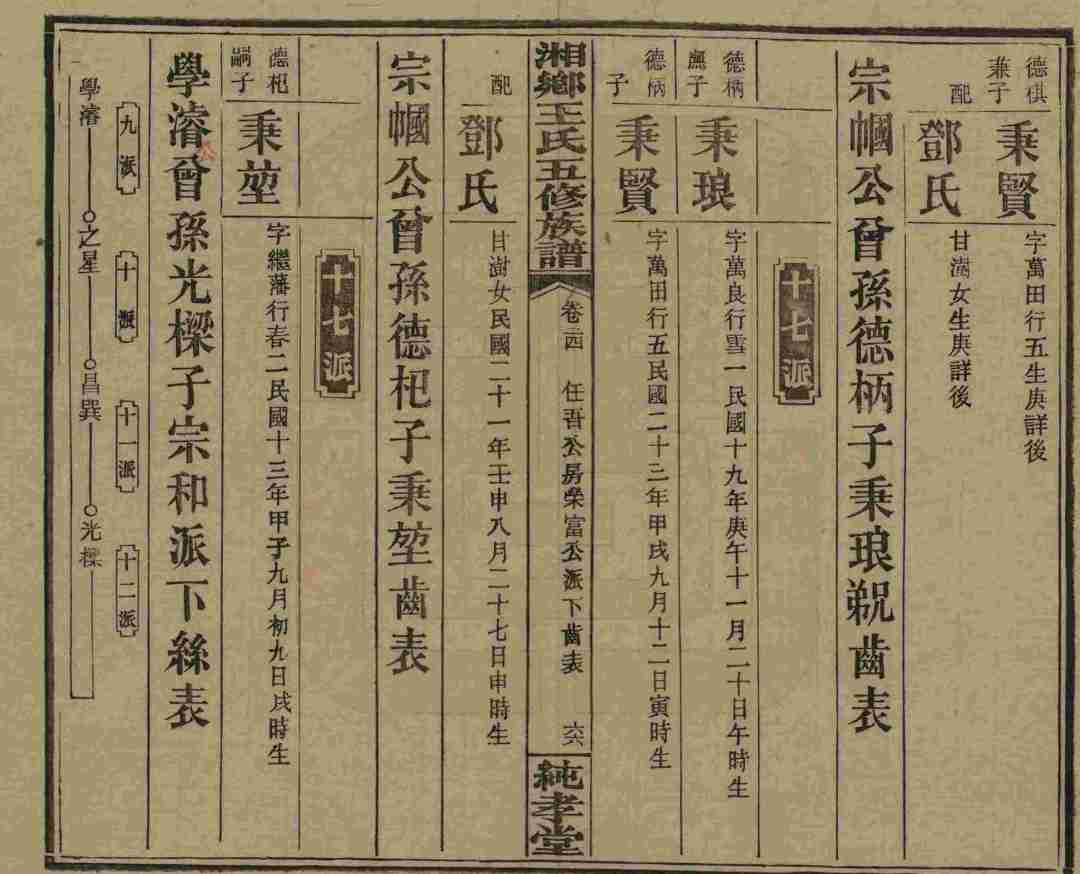 德祺
兼子
秉賢
字萬田行五生庚詳後
配
鄧氏
甘澍女生庚詳後
宗幗公曾孫德柄子秉琅覨齒表
十七派
德柄
鷹子
秉琅
字萬良行雪一民國十九年庚午十一月二十日午時生
德柄
子
秉賢
字萬田行五民國二十三年甲戌九月十二日寅時生
湘鄉王氏五修族譜
卷古四
任吾公房榮富公派下齒表
六六
純孝堂
配
鄧氏
甘澍女民國二十一年壬申八月二十七日申時生
宗幗公曾孫德杞子秉堃齒表
十七派
德杞
嗣子
秉堃
字繼藩行春二民國十三年甲子九月初九日戌時生
學濬曾孫光樑子宗和派下絲表
九派
十派
十一派
十二派
學濬
之星
昌巽
光樑